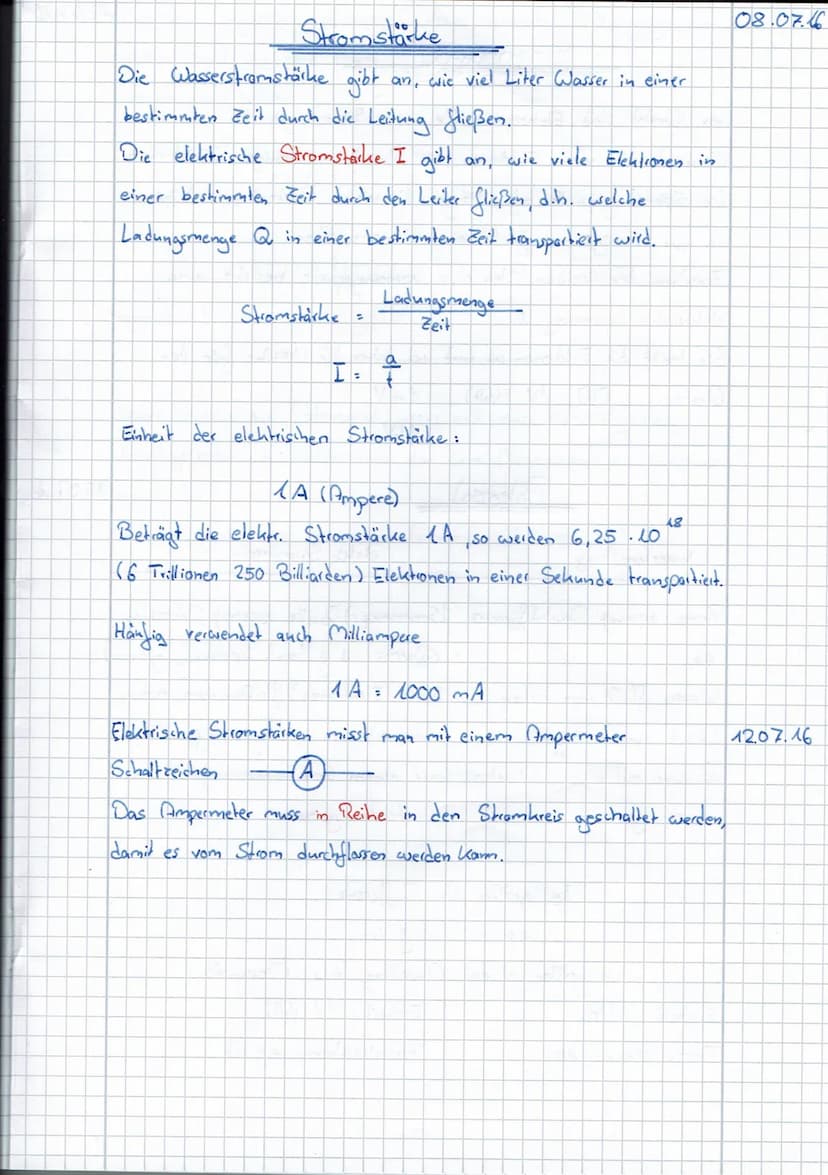 08.07.16
Stromstärke
Die Wasserstromstärke gibt an, wie viel Liter Wasser in einer
bestimmten Zeit durch die Leitung fließen.
Die elektrische Stromstärke I gibt an, wie viele Elektronen in
einer bestimmten Zeit durch den Leiter fließen, d.h. welche
Ladungsmenge Q in einer bestimmten Zeit transportiert wird.
Stromstärke = Ladungsmenge / Zeit
I = Q / t
Einheit der elektrischen Stromstärke:
1A (Ampere)
Beträgt die elektr. Stromstärke 1A, so werden 6,25 · 10^18
(6 Trillionen 250 Billiarden) Elektronen in einer Sekunde transportiert.
Häufig verwendet auch Milliampere
1A = 1000 mA
Elektrische Stromstärken misst man mit einem Ampermeter 12.07.16
Schaltzeichen A
Das Ampermeter muss in Reihe in den Stromkreis geschaltet werden,
damit es vom Strom durchflossen werden kann.